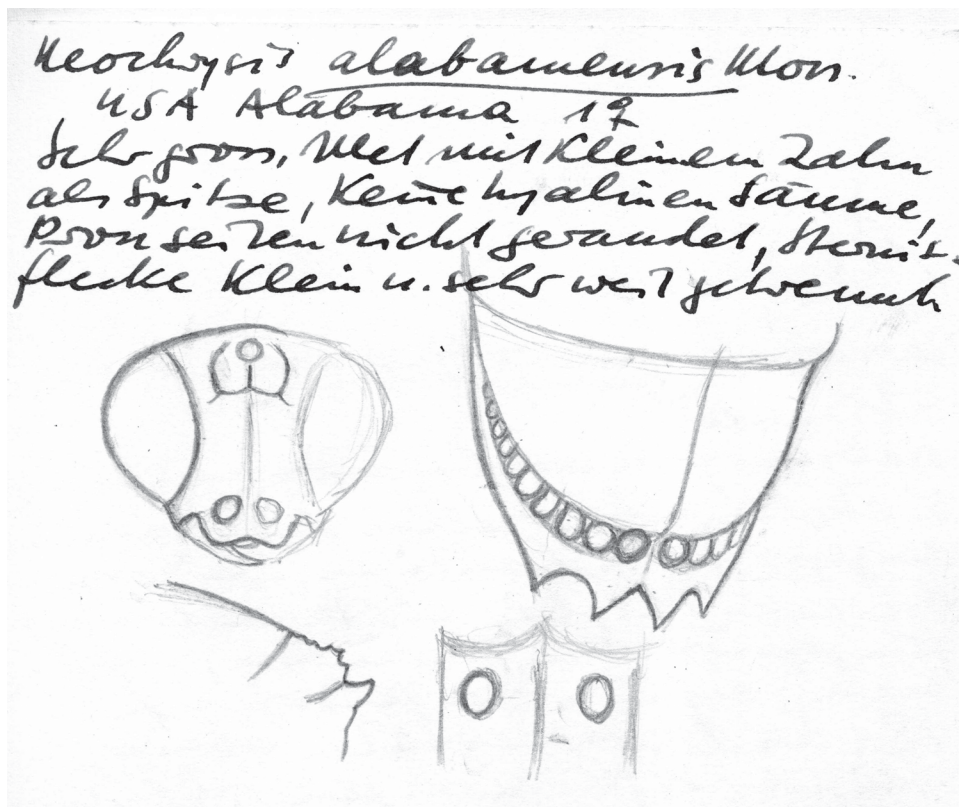 Neochrysis alabamensis Mocs.
USA Alabama 1♀
Sehr gross, Met mit kleinem Zahn
als Spitze, Keine hyalinen Säume,
Pronseiten nicht gerandet, Sternit-
flecke Klein u. sehr weit getrennt